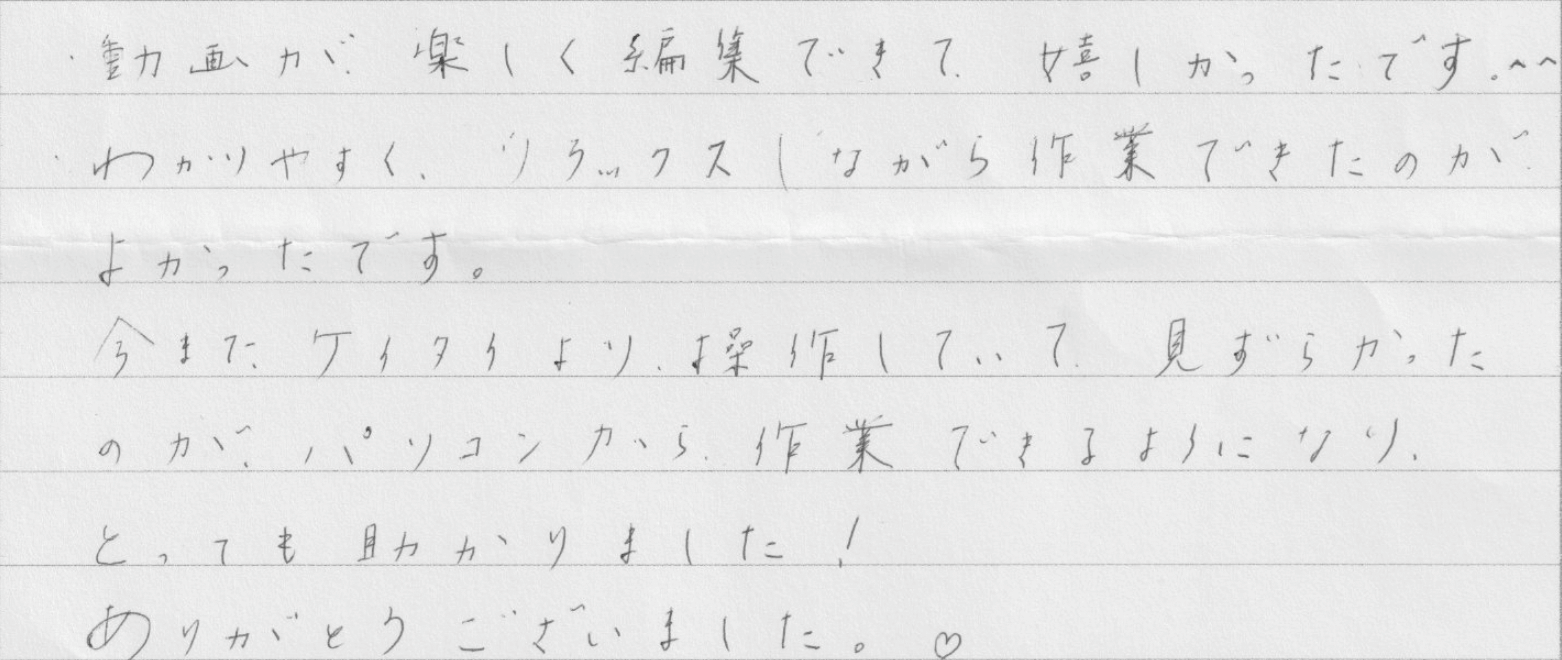 ・動画が楽しく編集できて、嬉しかったです。^^
・わかりやすく、リラックスしながら作業できたのが
よかったです。
今まで、ケイタイより、操作していて、見ずらかった
のが、パソコンから、作業できるようになり、
とっても助かりました!
ありがとうございました。♡